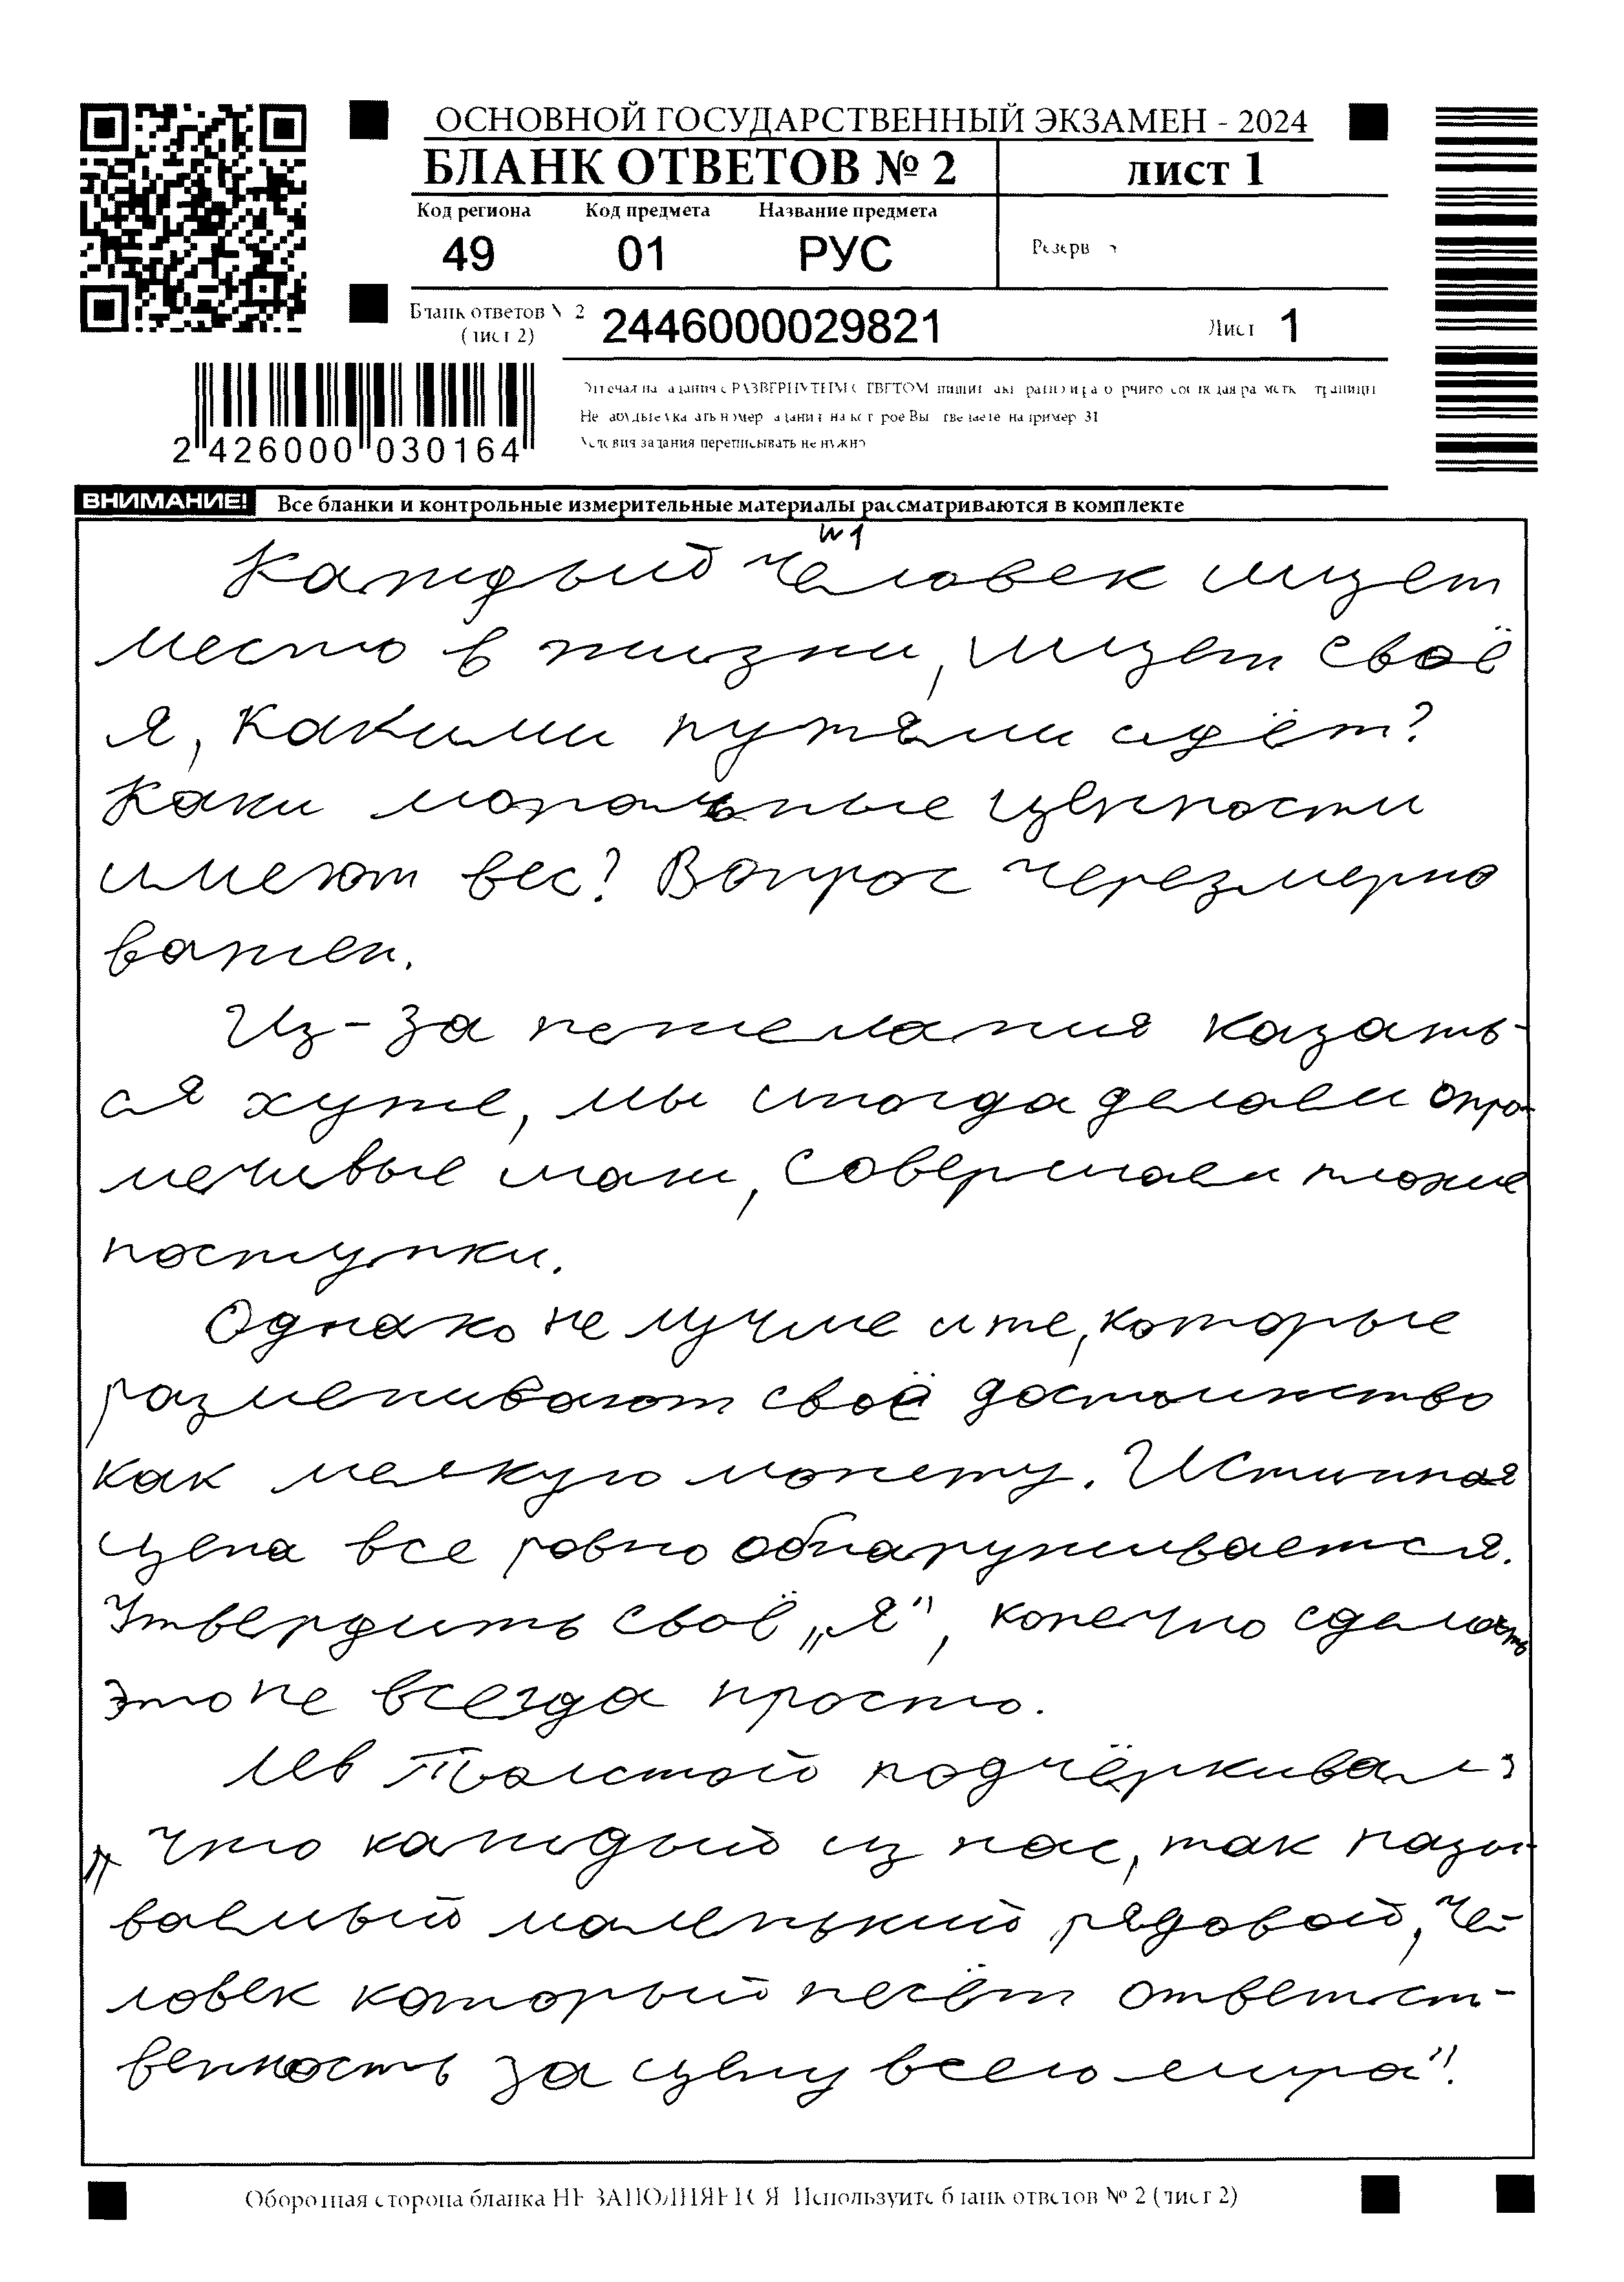 ОСНОВНОЙ ГОСУДАРСТВЕННЫЙ ЭКЗАМЕН - 2024
БЛАНК ОТВЕТОВ № 2
лист 1
Код региона Код предмета Название предмета
49 01 РУС
Резерв
Бланк ответов № 2
(лист 2)
2446000029821
Лист 1
2 426000 030164
Условия задания переписывать не нужно
ВНИМАНИЕ! Все бланки и контрольные измерительные материалы рассматриваются в комплекте
№1
Каждый человек ищет
место в жизни, ищет своё
я, какими путями идёт?
Каки моральные ценности
имеют вес? Вопрос черезмерно
важен.
Из-за нежелания казать-
ся хуже, мы иногда делаем опро-
мечивые шаги, совершаем плохие
поступки.
Однако не лучше и те, которые
разменивают своё достоинство
как мелкую монету. Истинная
цена все ровно обнаруживается.
Утвердить своё „Я", конечно сделать
это не всегда просто.
Лев Толстой подчёркивал:
„Что каждый из нас, так назы-
ваемый маленький рядовой, че-
ловек который несёт ответст-
венность за цену всего мира".
Оборотная сторона бланка НЕ ЗАПОЛНЯЕТСЯ. Используйте бланк ответов № 2 (лист 2)